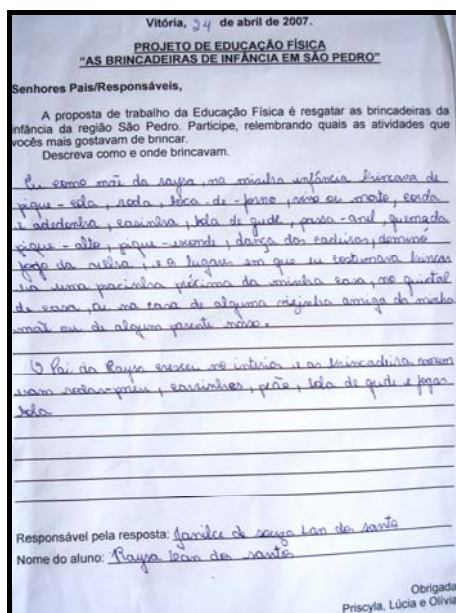 Vitória, 24 de abril de 2007.
PROJETO DE EDUCAÇÃO FÍSICA
"AS BRINCADEIRAS DE INFÂNCIA EM SÃO PEDRO"
Senhores Pais/Responsáveis,
A proposta de trabalho da Educação Física é resgatar as brincadeiras da
infância da região São Pedro. Participe, relembrando quais as atividades que
vocês mais gostavam de brincar.
Descreva como e onde brincavam.
Eu como mãe da raysa, na minha infância brincava de
pique-cola, roda, boca-de-forno, vivo ou morto, corda
e adedonha, casinha, bola de gude, passa-anel, queimada
pique-alto, pique-esconde, dança das cadeiras, dominó
jogo da velha, e a lugares em que eu costumava brincar
uma pracinha próxima da minha casa, no quintal
de casa, na casa de alguma vizinha amiga da minha
mãe ou de algum parente nosso.
O Pai da Raysa cresceu no e as brincadeira
rodar-pneu, carrinhos, peão, bola de gude e jogar
bola
Responsável pela resposta: Janilce de souza dos santo
Nome do aluno: Raysa dos santo
Obrigada
Priscyla, Lúcia e Olívia